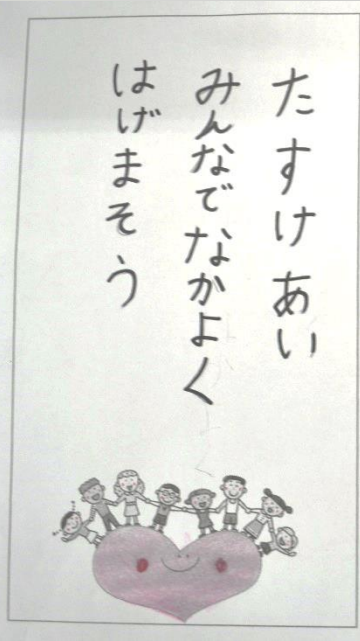 たすけあい
みんなでなかよく
はげまそう